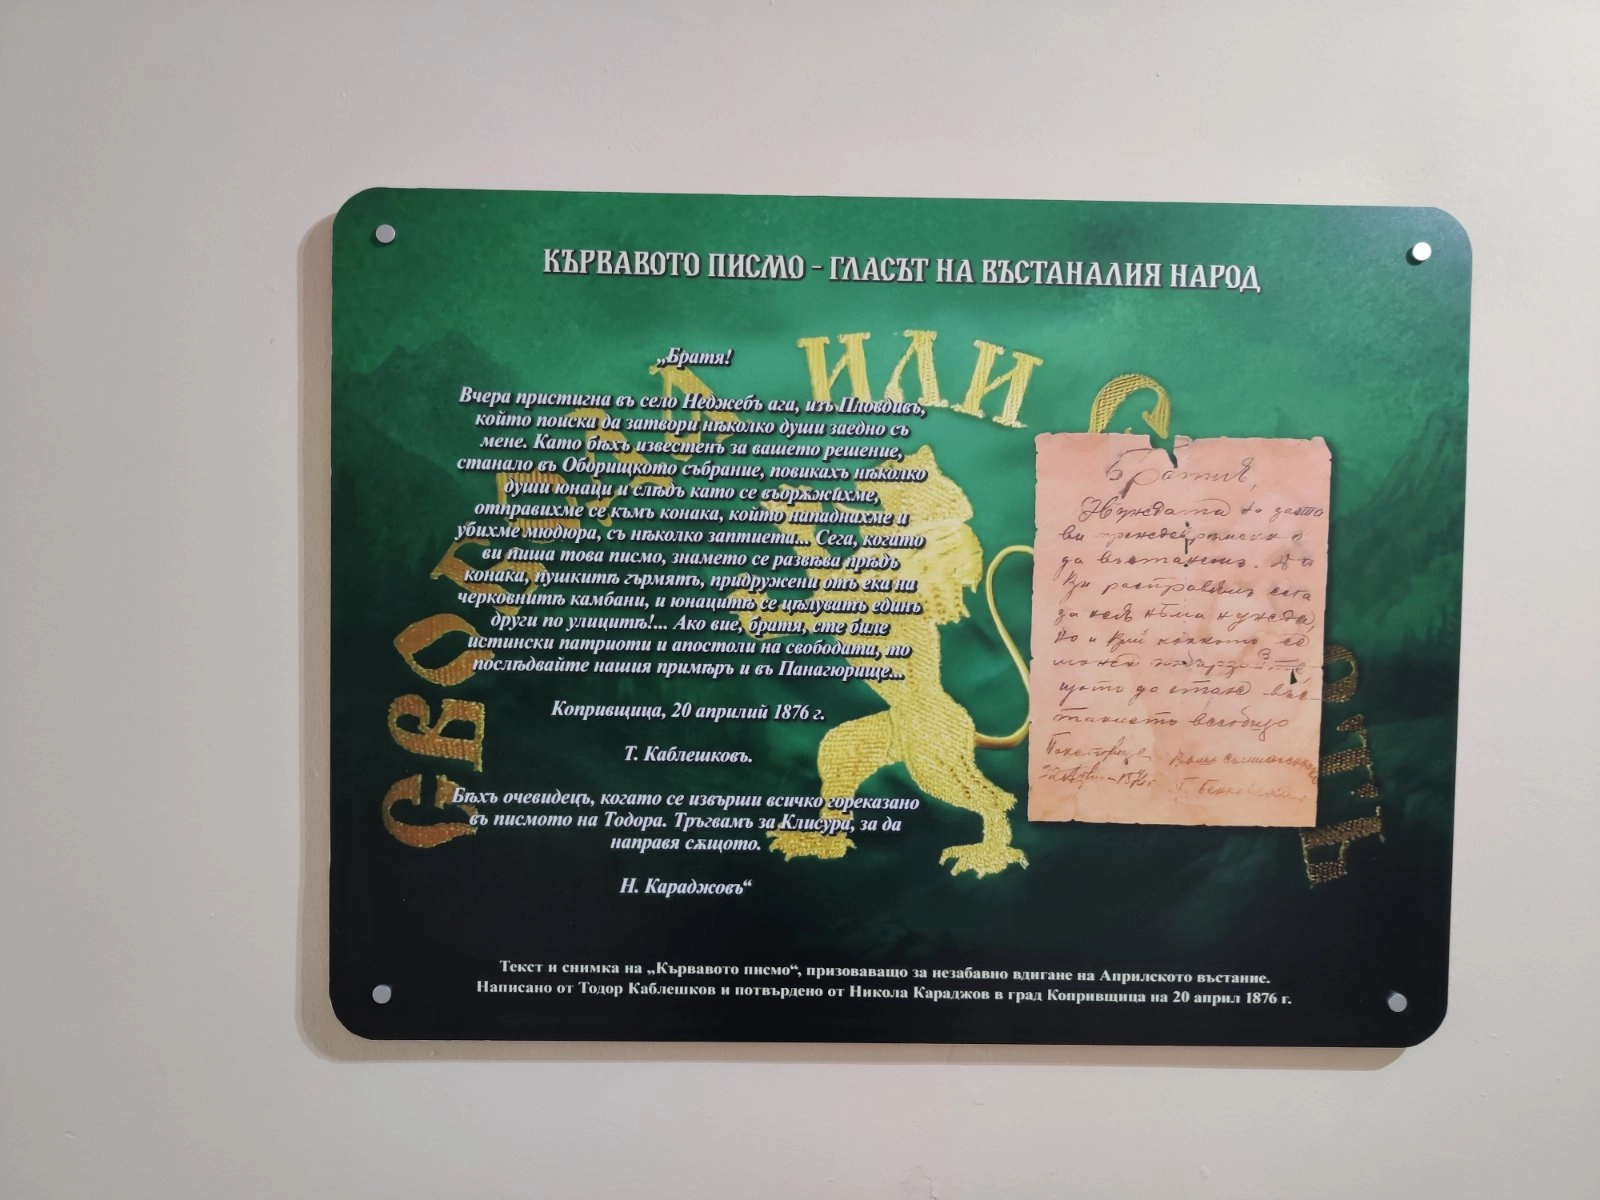 КЪРВАВОТО ПИСМО - ГЛАСЪТ НА ВЪСТАНАЛИЯ НАРОД
СВОБОДА ИЛИ С
„Братя!
Вчера пристигна въ село Неджебъ ага, изъ Пловдивъ,
който поиска да затвори нѣколко души заедно съ
мене. Като бѣхъ известенъ за вашето решение,
станало въ Оборищкото събрание, повикахъ нѣколко
души юнаци и слѣдъ като се въорѫжихме,
отправихме се къмъ конака, който нападнахме и
убихме мюдюра, съ нѣколко заптиета... Сега, когато
ви пиша това писмо, знамето се развѣва прѣдъ
конака, пушкитѣ гърмятъ, придружени отъ ека на
черковнитѣ камбани, и юнацитѣ се цѣлуватъ единъ
други по улицитѣ!... Ако вие, братя, сте биле
истински патриоти и апостоли на свободата, то
послѣдвайте нашия примѣръ и въ Панагюрище...
Копривщица, 20 априлий 1876 г.
Т. Каблешковъ.
Бѣхъ очевидецъ, когато се извърши всичко гореказано
въ писмото на Тодора. Тръгвамъ за Клисура, за да
направя сѫщото.
Н. Караджовъ“
Братия,
Нуждата
да въстанемъ.
да
Текст и снимка на „Кървавото писмо“, призоваващо за незабавно вдигане на Априлското въстание.
Написано от Тодор Каблешков и потвърдено от Никола Караджов в град Копривщица на 20 април 1876 г.